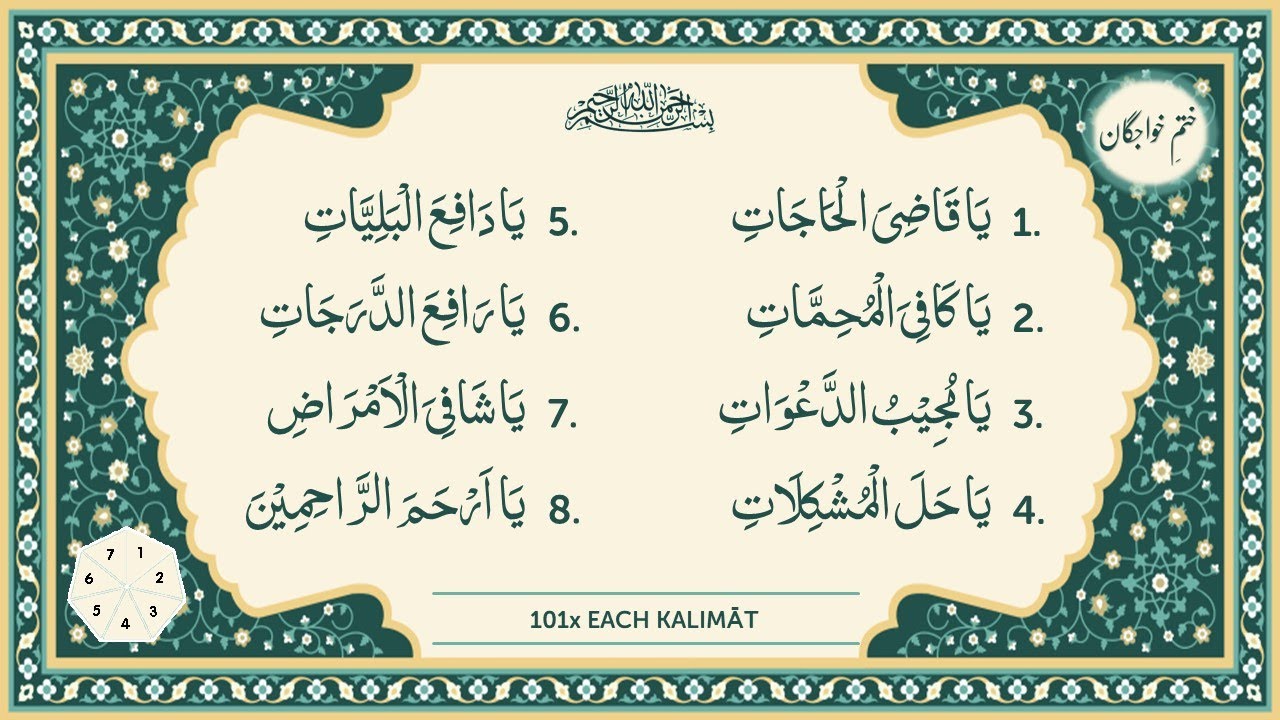 بِسْمِ اللهِ الرَّحْمٰنِ الرَّحِيْمِ
ختمِ خواجگان
1. يَا قَاضِىَ الْحَاجَاتِ
2. يَا كَافِىَ الْمُحِمَّاتِ
3. يَا مُجِيْبُ الدَّعْوَاتِ
4. يَا حَلَ الْمُشْكِلَاتِ
5. يَا دَافِعَ الْبَلِيَّاتِ
6. يَا رَافِعَ الدَّرَجَاتِ
7. يَا شَافِىَ الْاَمْرَاضِ
8. يَا اَرْحَمَ الرَّاحِمِيْنَ
1
2
3
4
5
6
7
101x EACH KALIMĀT